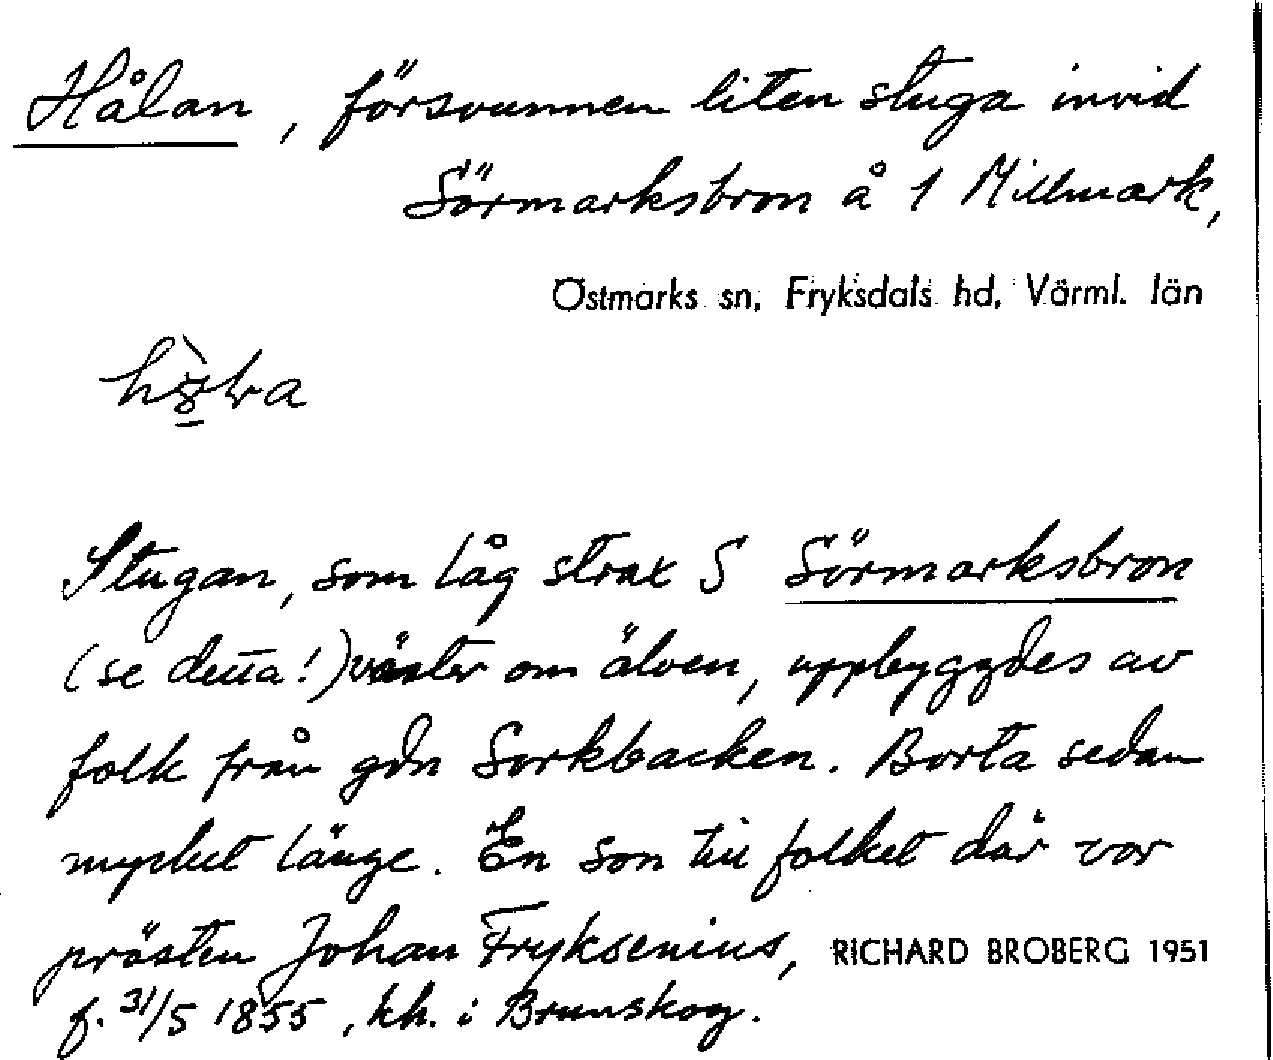 Hålan, försvunnen liten stuga invid
Sörmarksbron å 1 Millmark,
Östmarks sn, Fryksdals hd, Värml. län
Stugan, som låg strax S Sörmarksbron
(se detta!) väster om älven, uppbyggdes av
folk från gdn Sorkbacken. Borta sedan
mycket länge. En son till folket där var
prästen Johan Fryksenius,
RICHARD BROBERG 1951
f. 31/5 1855, kh. i Brunskog.